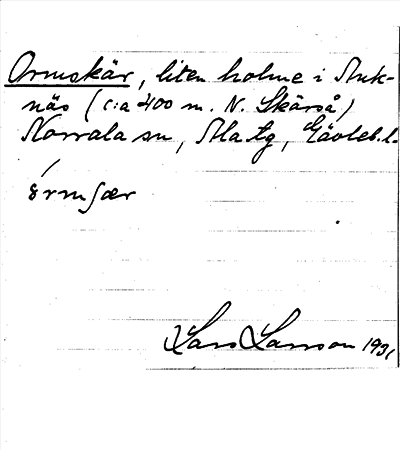 Ormskär, liten holme i Auk-
näs (c:a 400 m. N. Skärså)
Norrala sn, Ala tg, Gävleb. l.
Lars Larsson 1931